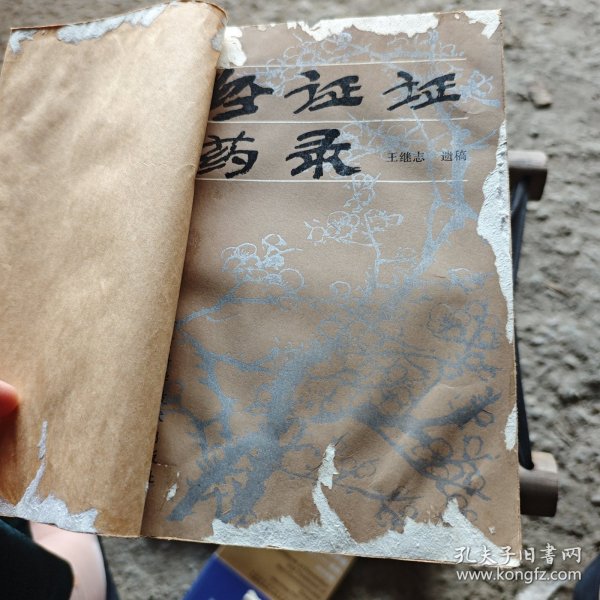 各证证
药录
王继志 遗稿
孔夫子旧书网
www.kongfz.com